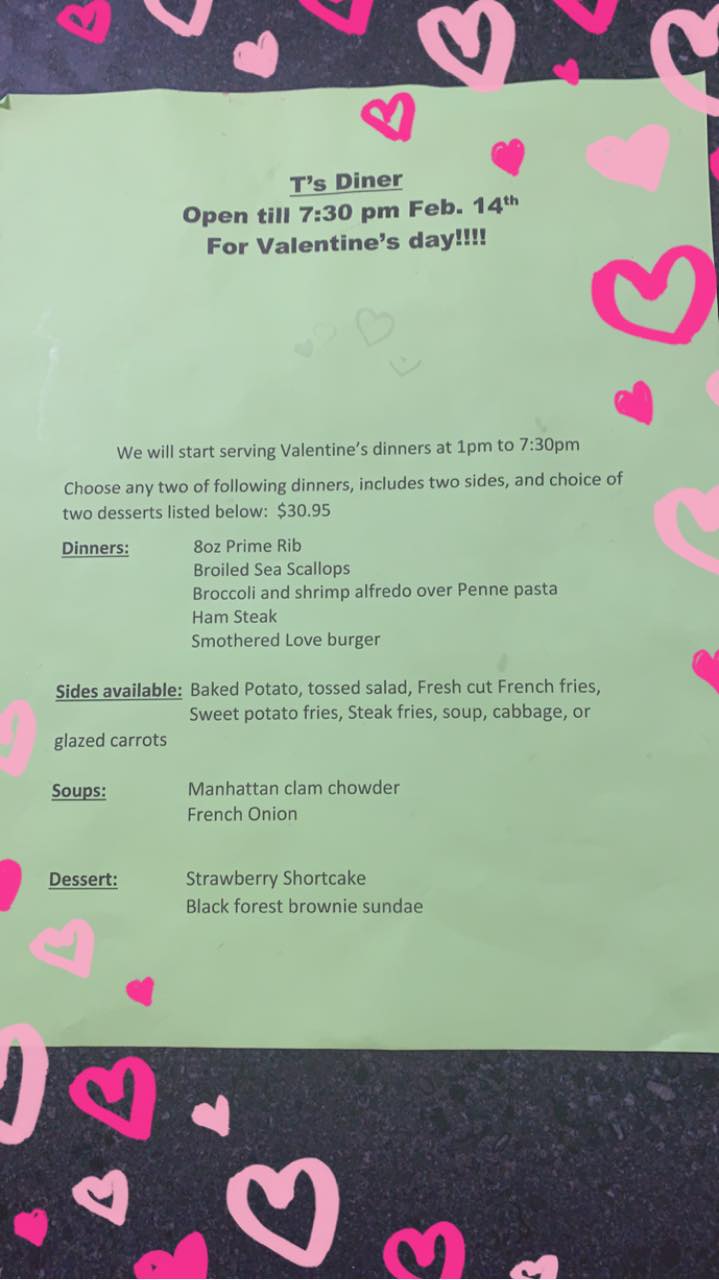 T's Diner
Open till 7:30 pm Feb. 14th
For Valentine's day!!!!
We will start serving Valentine's dinners at 1pm to 7:30pm
Choose any two of following dinners, includes two sides, and choice of
two desserts listed below: $30.95
Dinners: 8oz Prime Rib
Broiled Sea Scallops
Broccoli and shrimp alfredo over Penne pasta
Ham Steak
Smothered Love burger
Sides available: Baked Potato, tossed salad, Fresh cut French fries,
Sweet potato fries, Steak fries, soup, cabbage, or
glazed carrots
Soups: Manhattan clam chowder
French Onion
Dessert: Strawberry Shortcake
Black forest brownie sundae